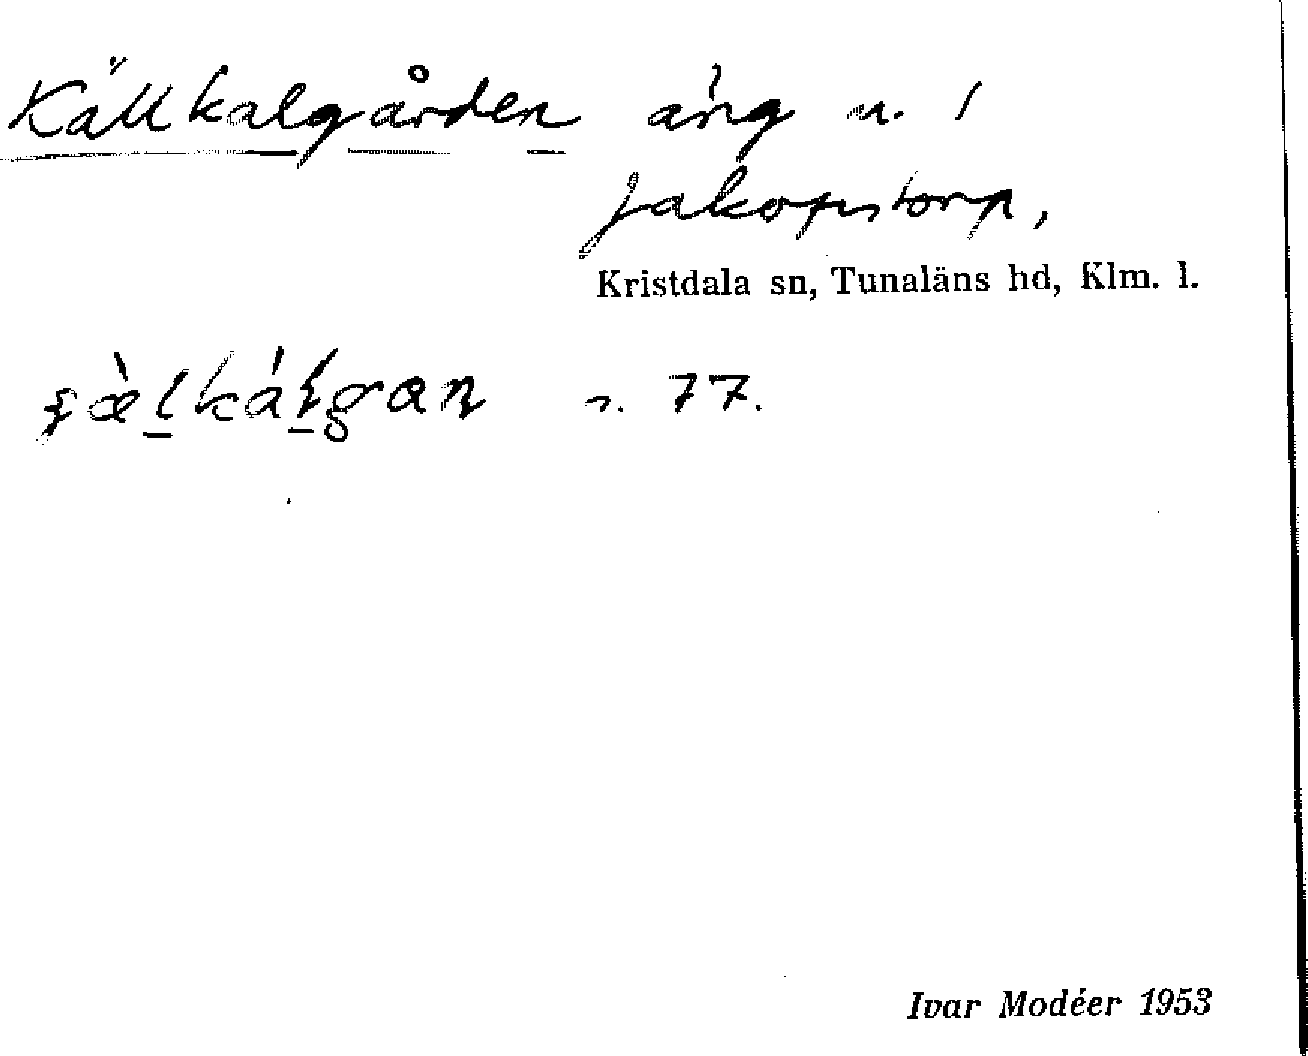 Källkalgården äng n. i
Jakopstorp,
Kristdala sn, Tunaläns hd, Klm. l.
s. 77.
Ivar Modéer 1953